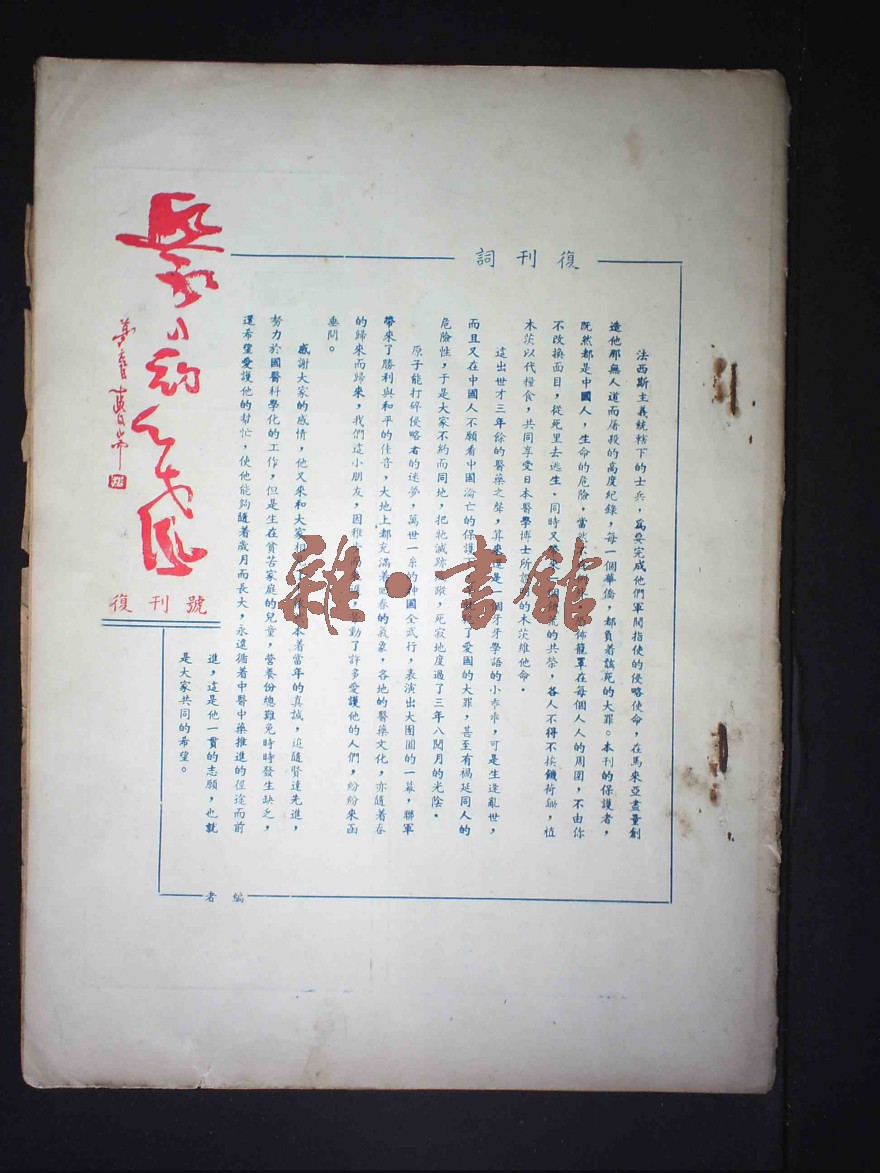 復刊詞
法西斯主義統轄下的士兵，為要完成他們軍閥指使的侵略使命，在馬來亞盡量創
造他那無人道而屠殺的高度紀錄，每一個華僑，都負着該死的大罪。本刊的保護者，
既然都是中國人，生命的危險，當 佈籠罩在每個人人的周圍，不由你
不改換面目，從死里去逃生。同時又 的共榮，各人不得不挨鋤荷鋤，植
木茨以代糧食，共同享受日本醫學博士所 的木茨維他命。
這出世才三年餘的醫藥之聲，算來還是一個牙牙學語的小乖乖，可是生逢亂世，
而且又在中國人不願看中國淪亡的保護 了愛國的大罪，甚至有禍延同人的
危險性，于是大家不約而同地，把牠滅跡 蹤，死寂地度過了三年八閱月的光陰。
原子能打碎侵略者的迷夢，萬世一系的 中國全武行，表演出大團圓的一幕，聯軍
帶來了勝利與和平的佳音，大地上都充滿着回春的氣象，各地的醫藥文化，亦隨着春
的歸來而歸來，我們這小朋友，因稚 動了許多愛護他的人們，紛紛來函
垂問。
感謝大家的盛情，他又來和大家 本着當年的真誠，追隨賢達先進，
努力於國醫科學化的工作，但是生在貧苦家庭的兒童，營養份總難免時時發生缺乏，
還希望愛護他的幫忙，使他能夠隨着歲月而長大，永遠循着中醫中藥推進的徑途而前
進，這是他一貫的志願，也就
是大家共同的希望。
編者
復刊號
雜·書館